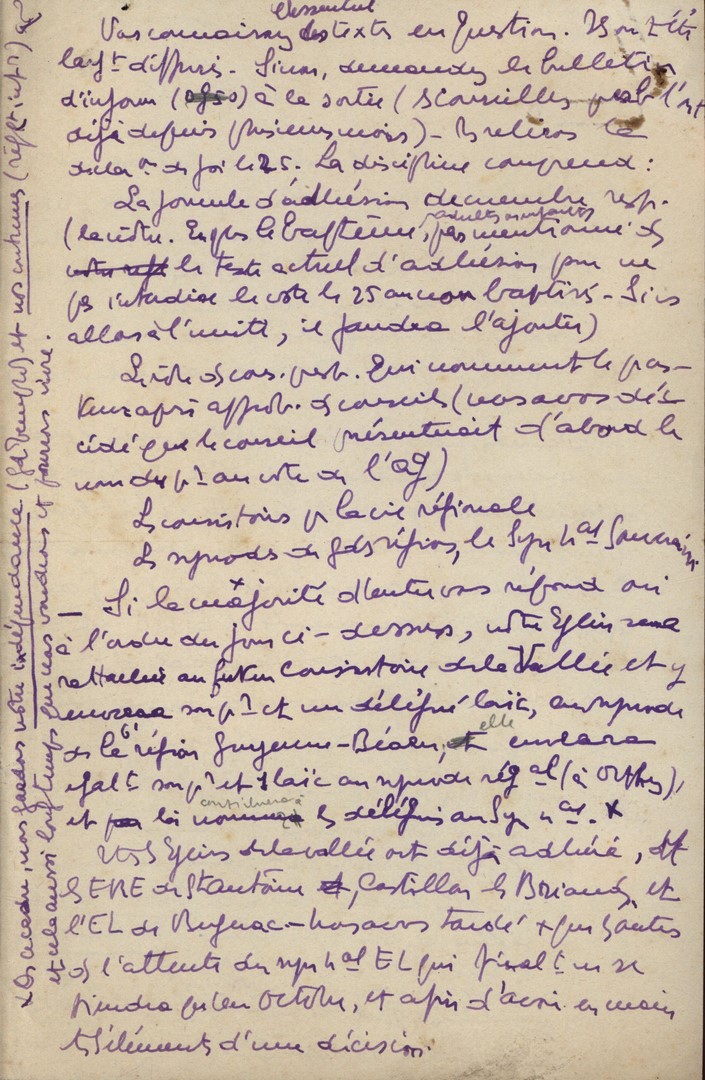 Vs connaissez les textes en question. Ils ont été
largt diffusés. Sinon, demandez le bulletin
d'inform ( ) à la sortie ( conseillers presb. l'ont
déjà depuis plusieurs mois) - Je relirai la
déclaron de foi le 25. La discipline comprend :
La formule d'adhésion de membre resp.
(la nôtre. En plus le baptême, adultes ou enfants, pas mentionné ds
le texte actuel d'adhésion pour ne
pas interdire le vote le 25 aux non baptisés - Si ns
allons à l'unité, il faudra l'ajouter)
Le rôle ds cons. presb. Qui nomment le pas-
teur après approb. ds conseils (nous avons dé-
cidé que le conseil présenterait d'abord le
nom du pr au vote de l'AG)
Ls consistoires pr la vie régionale
Ls synodes de gdes régions, le Syn nal Souverain
Si la majorité d'entre vous répond oui
à l'ordre du jour ci-dessus, notre Eglise sera
rattachée au futur Consistoire de la Vallée et y
enverra son pr et un délégué laïc, au synode
de la 6e région Guyenne-Béarn, elle enverra
égalt son pr et 1 laïc au synode régal (à Orthez),
et ls délégués au Syn nal. x
Ttes ls Eglises de la vallée ont déjà adhéré,
ls ERE de St Antoine, Castillon ls Briands, et
l'EL de - Nous avons tardé + que ls autres
ds l'attente du syn nal EL qui finalt ne se
tiendra qu'en Octobre, et afin d'avoir en main
ts ls éléments d'une décision.
x Ds ce cadre, nous gardons notre indépendance (gd temple) et nos coutumes
et cela aussi longtemps que nous voudrons et pourrons vivre.